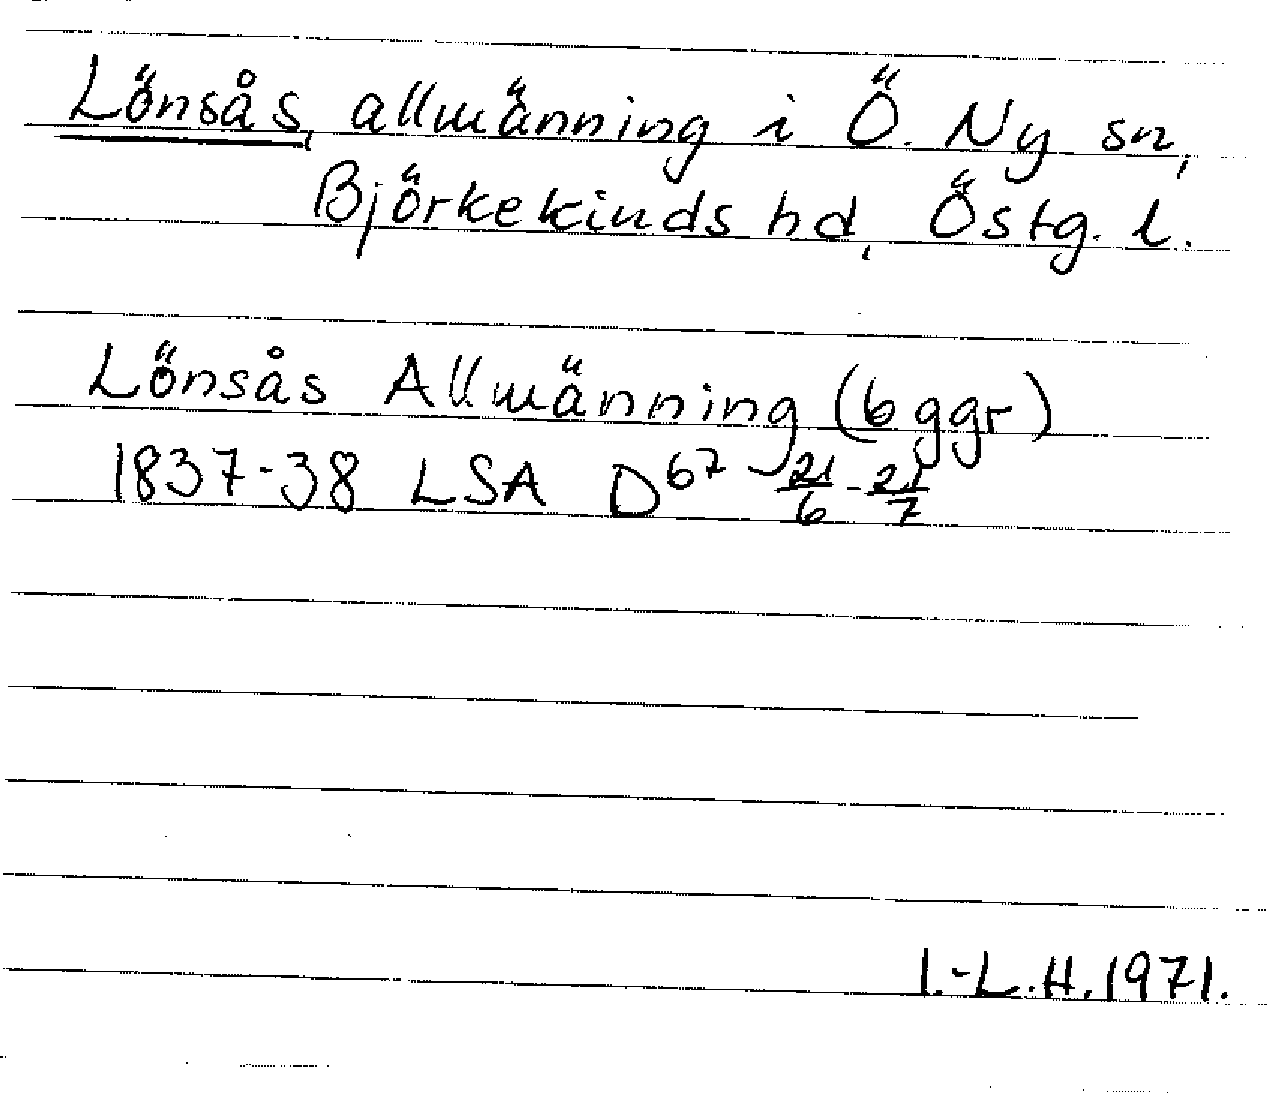 Lönsås, allmänning i Ö. Ny sn,
Björkekinds hd, Östg. l.
Lönsås Allmänning (6 ggr)
1837-38 LSA D67 21/6 - 21/7
I.-L.H. 1971.